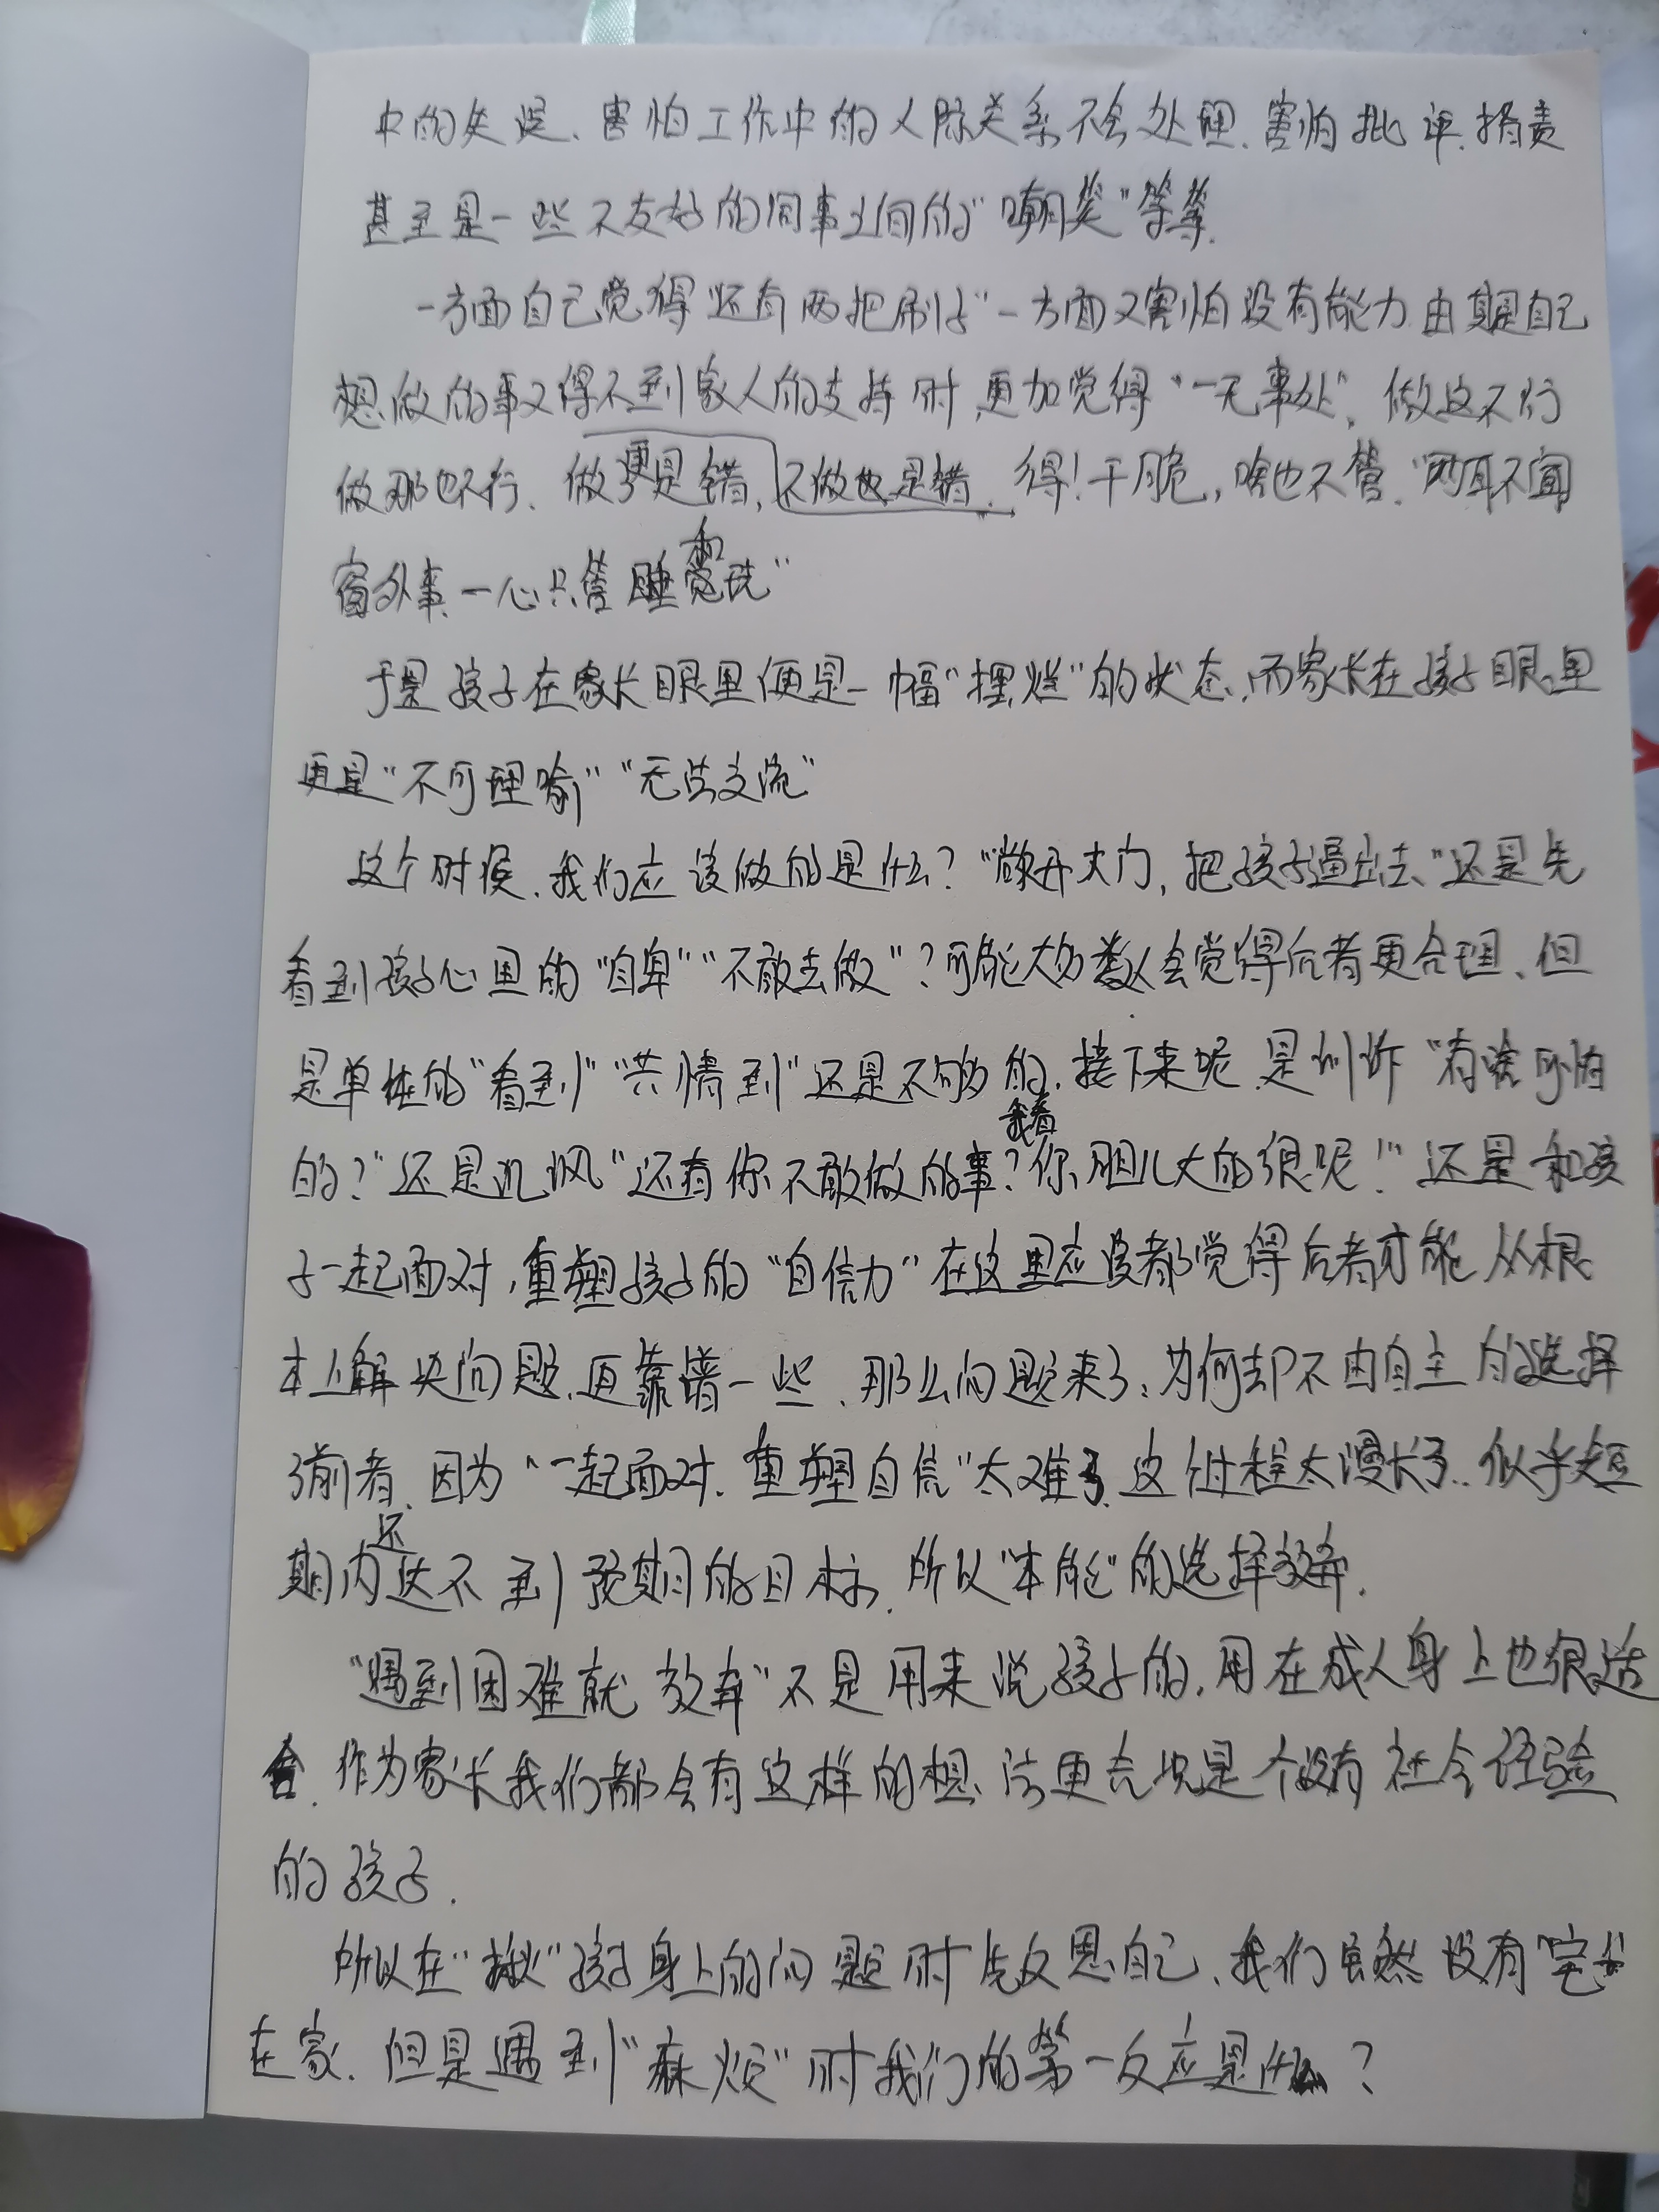 中的失误、害怕工作中的人际关系不会处理、害怕批评、指责
甚至是一些不友好的同事之间的“嘲笑”等等.
一方面自己觉得还有两把刷子”一方面又害怕没有能力由其是自己
想做的事又得不到家人的支持时,更加觉得“一无事处”,做这不行
做那也不行、做了更是错,不做也是错.得!干脆,啥也不管.“两耳不闻
窗外事一心只管睡觉和玩”
于是孩子在家长眼里便是一幅“摆烂”的状态,而家长在孩子眼里
更是“不可理喻”“无法交流”
这个时候,我们应该做的是什么?“敞开大门,把孩子逼出去”还是先
看到孩子心里的“自卑”“不敢去做”?可能大多数人会觉得后者更合理、但
是单纯的“看到”“共情到”还是不够的,接下来呢,是训斥“有啥可怕
的?”还是讥讽“还有你不敢做的事?我看你胆儿大的很呢!”还是和孩
子一起面对,重塑孩子的“自信力”在这里应该都觉得后者才能从根
本上解决问题,更靠谱一些、那么问题来了:为何却不由自主的选择
了前者、因为“一起面对、重塑自信”太难了,这个过程太漫长了..似乎短
期内还达不到预期的目标,所以“本能”的选择放弃.
“遇到困难就放弃”不是用来说孩子的,用在成人身上也很适
合.作为家长我们都会有这样的想法更何况是个没有社会经验
的孩子.
所以在“揪”孩子身上的问题时先反思自己、我们虽然没有“宅”
在家.但是遇到“麻烦”时我们的第一反应是什么?